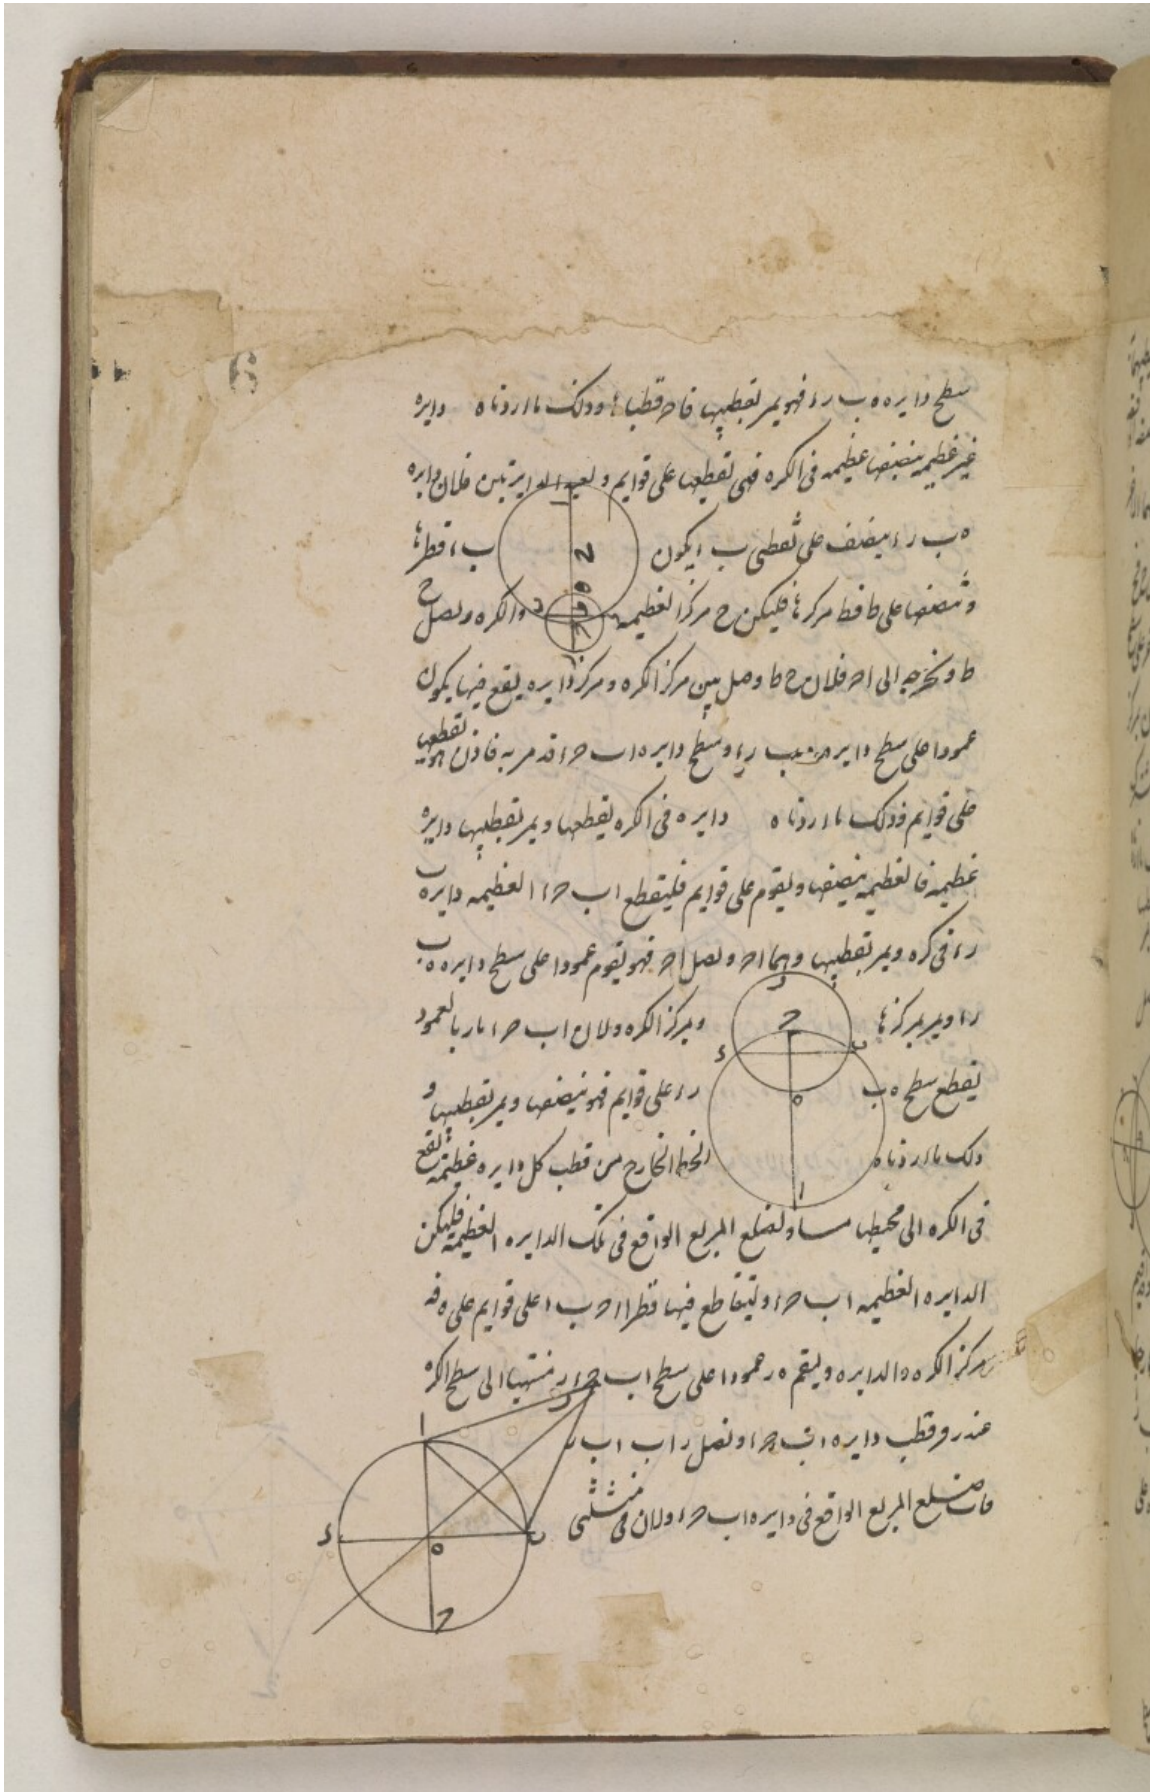 سطح دایره ه ب ر ء فهو یمر بقطبیها فا حـ قطباها و ذلک ما اردناه دایره
غیر عظیمه ینصفها عظیمه فی الکره فهی تقطعها علی قوایم ولیعد الدایرتین فلان دایره
ه ب ر ء ینصف علی نقطتی ب ء یکون ب ء قطرها
و ننصفها علی ط فط مرکزها فلیکن ح مرکز العظیمه والکره و نصل ح
ط و نخرجه الی ا حـ فلان ح ط وصل بین مرکز الکره و مرکز دایره یقع فیها یکون
عمودا علی سطح دایره ب ر ء و سطح دایره ا ب حـ ء قد مر به فاذن هو یقطعها
علی قوایم فذلک ما اردناه دایره فی الکره یقطعها و یمر بقطبیها دایره
عظیمه فالعظیمه ینصفها و یقوم علی قوایم فلیقطع ا ب حـ ء العظیمه دایره ه ب
ر ء فی کره و یمر بقطبیها و هما ا حـ و نصل ا حـ فهو یقوم عمودا علی سطح دایره ه ب
ر ء و یمر بمرکزها و بمرکز الکره و لان ا ب حـ ء مار بالعمود
یقطع سطح ه ب ر ء علی قوایم فهو ینصفها و یمر بقطبیها و
ذلک ما اردناه الخط الخارج من قطب کل دایره عظیمه تقع
فی الکره الی محیطها مساو لضلع المربع الواقع فی تلک الدایره العظیمه فلیکن
الدایره العظیمه ا ب حـ ء و لیتقاطع فیها قطرا ا حـ ب ء علی قوایم علی ه فه
مرکز الکره و الدایره و لیقم ه ر عمودا علی سطح ا ب حـ ء منتهیا الی سطح الکره
عند ر فر قطب دایره ا ب حـ ء و نصل ر ا ر ب ا ب
فاب ضلع المربع الواقع فی دایره ا ب حـ ء و لان فی مثلثی